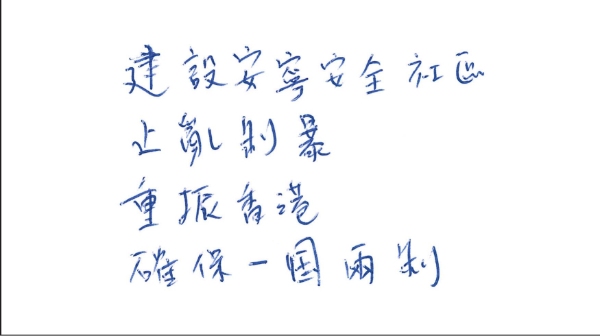 建設安寧安全社區
止亂制暴
重振香港
確保一国兩制